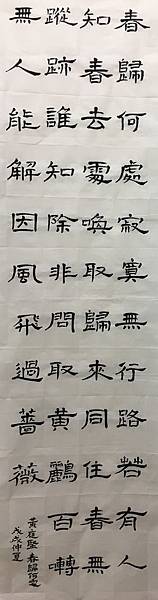 春歸何處寂寞無行路若有人
知春去處喚取歸來同住春無
蹤跡誰知除非問取黃鸝百囀
無人能解因風飛過薔薇
黃庭堅 春歸何處
戊戌仲夏